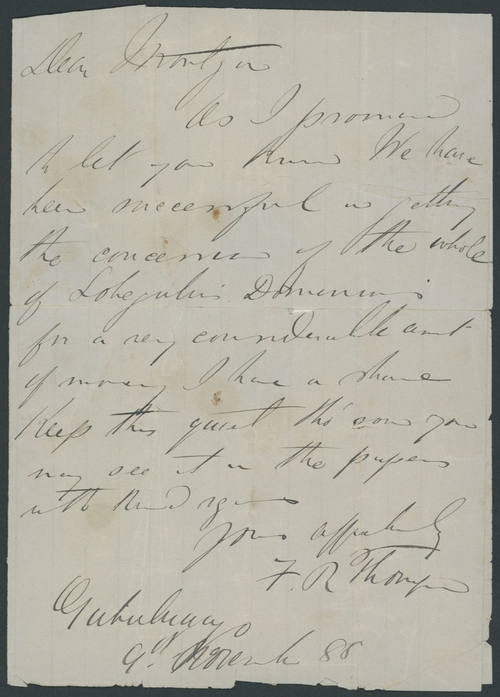 Dear
As I promised
to let you know We have
been successful in getting
the concession of the whole
of Lobegulu's Dominions
for a very considerable amt
of money I have a share
Keep this quiet tho' soon you
may see it in the papers
with kind regards
Yours affectionately
F. R Thompson
Gubuluwayo
9th November 88